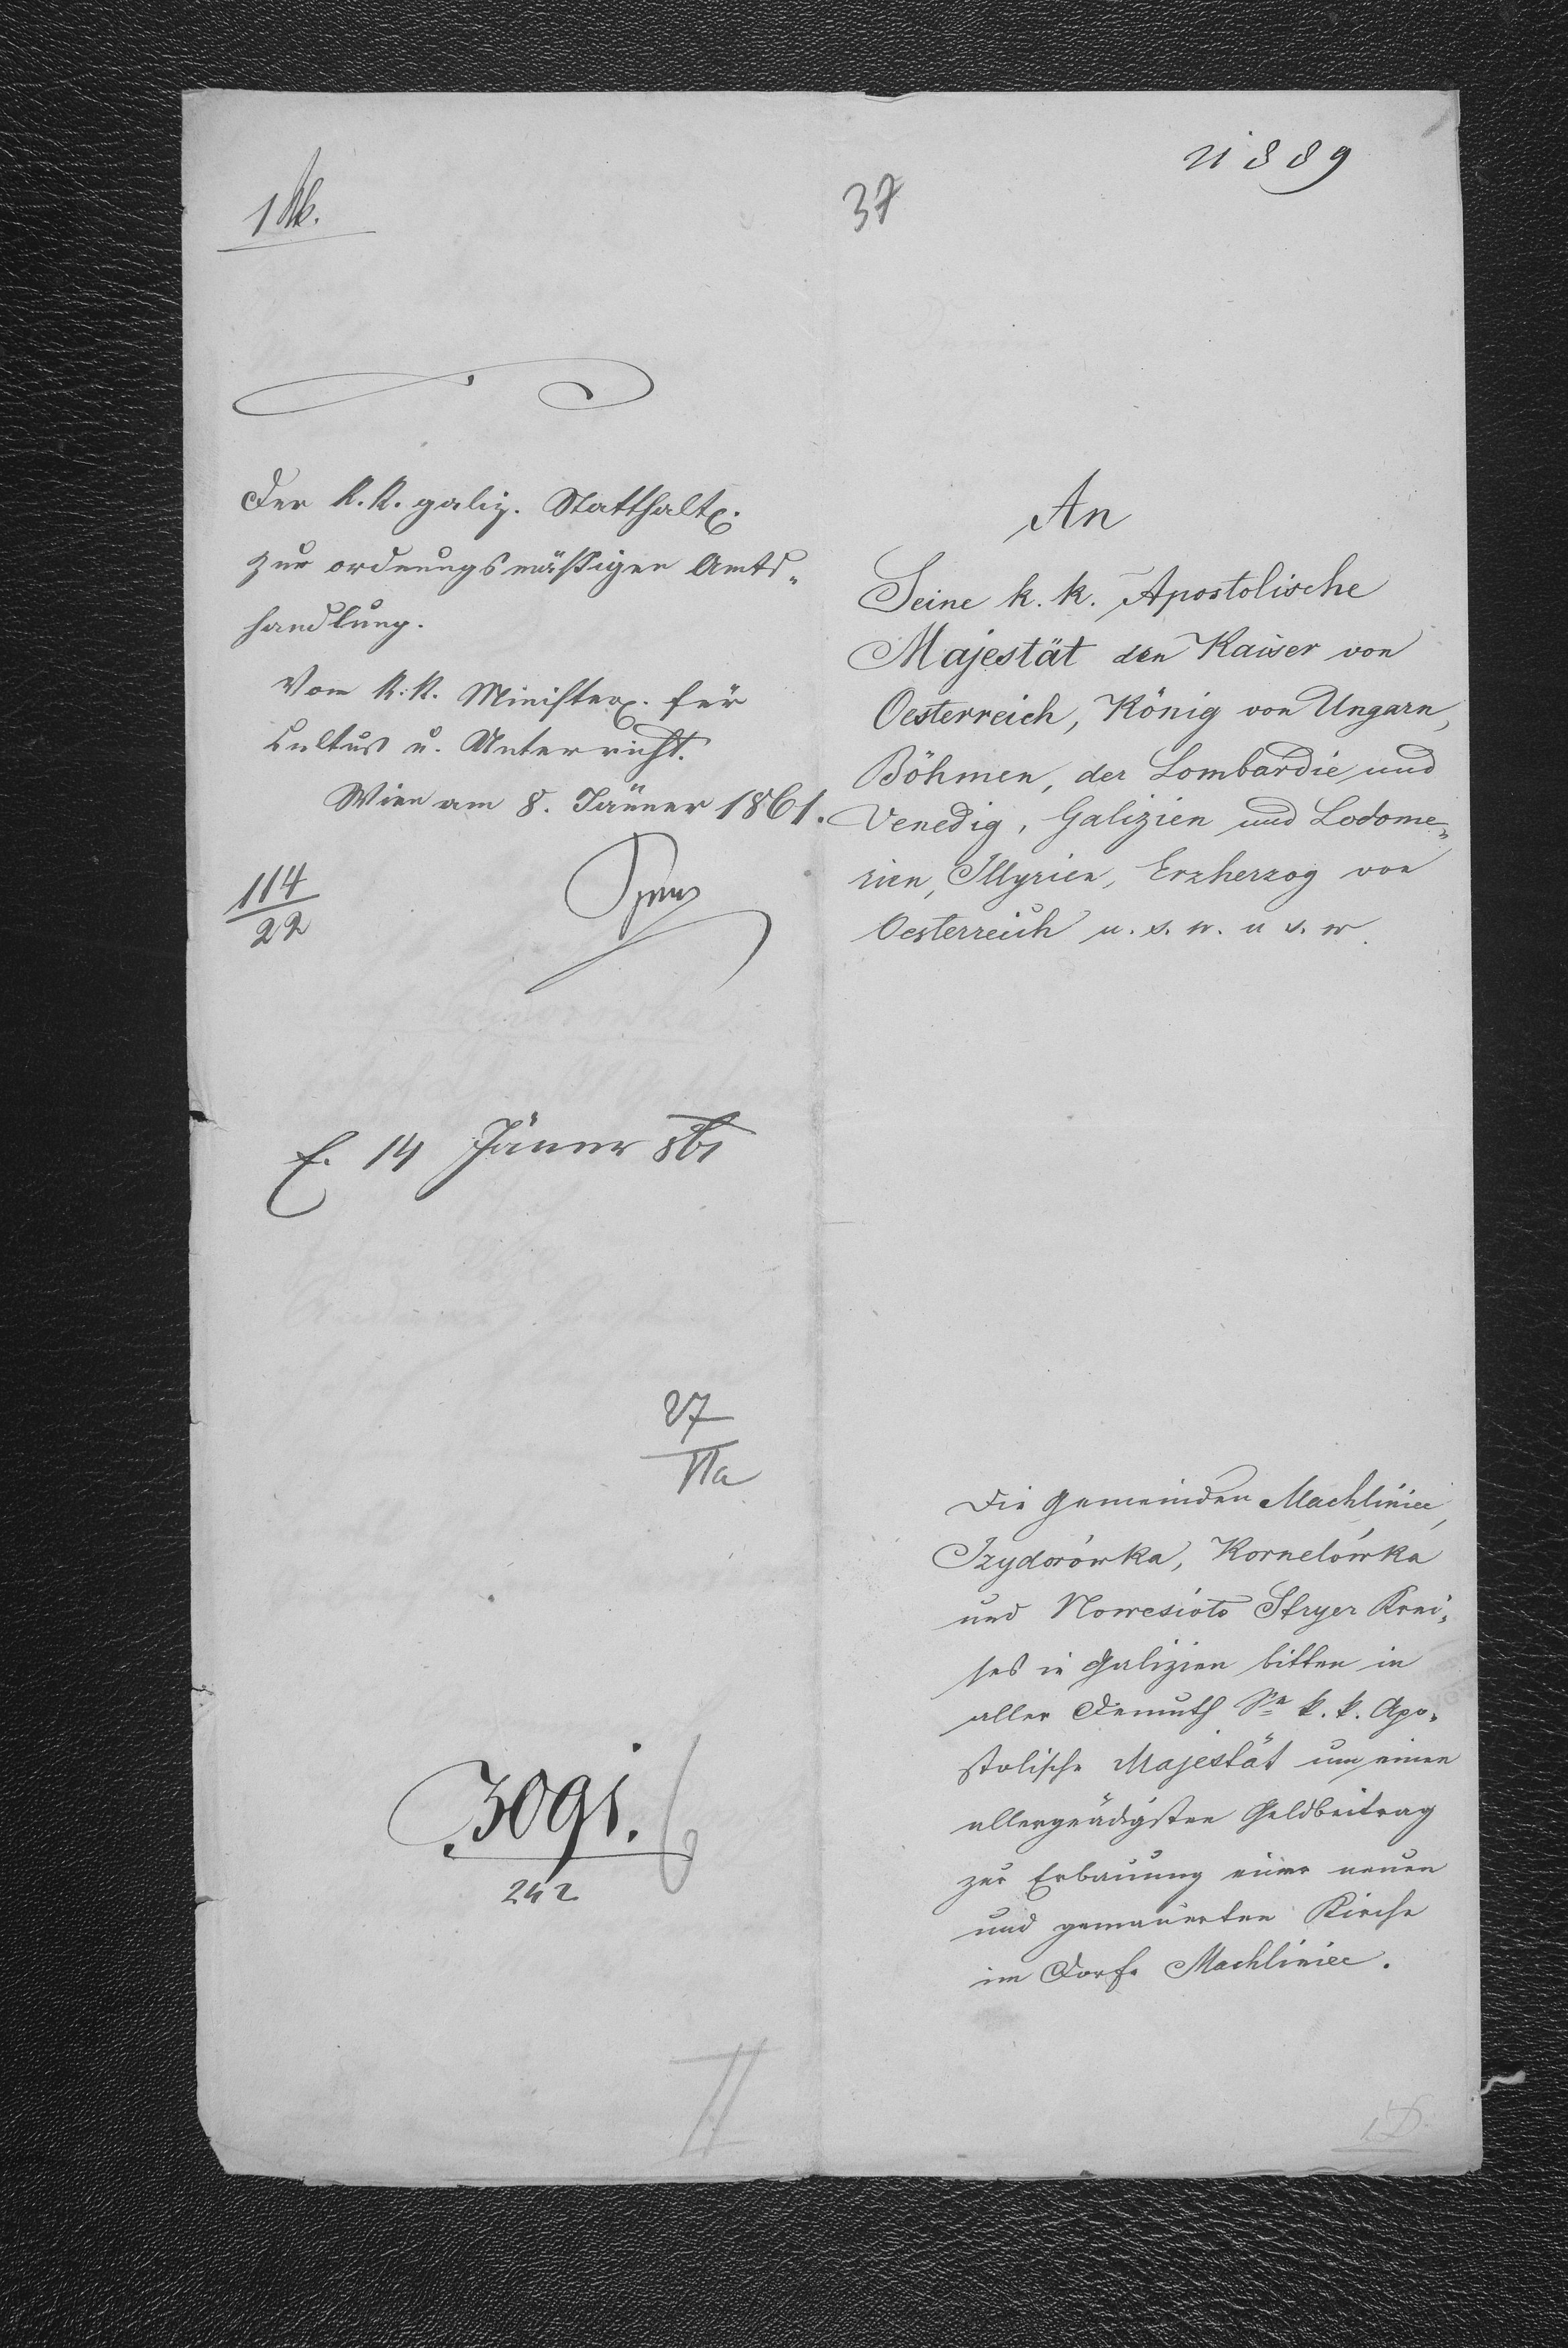 37
21889
Der k. k. galiz. Statthalt.
zur ordnungsmäßigen Amts-
handlung.
Vom k. k. Minister. für
Cultus u. Unterricht.
Wien am 8. Jänner 1861.
114
22
E. 14 Jänner 861
27
VIa
3091.
242
II
An
Seine k. k. Apostolische
Majestät den Kaiser von
Oesterreich, König von Ungarn,
Böhmen, der Lombardie und
Venedig, Galizien und Lodome-
rien, Illyrien, Erzherzog von
Oesterreich u. s. w. u s. w.
Die Gemeinden Machliniec,
Izydorówka, Kornelówka
und Nowesioło Stryer Krei-
ses in Galizien bitten in
aller Demuth Se k. k. Apo-
stolische Majestät um einen
allergnädigsten Geldbeitrag
zur Erbauung einer neuen
und gemauerten Kirche
im Dorfe Machliniec.